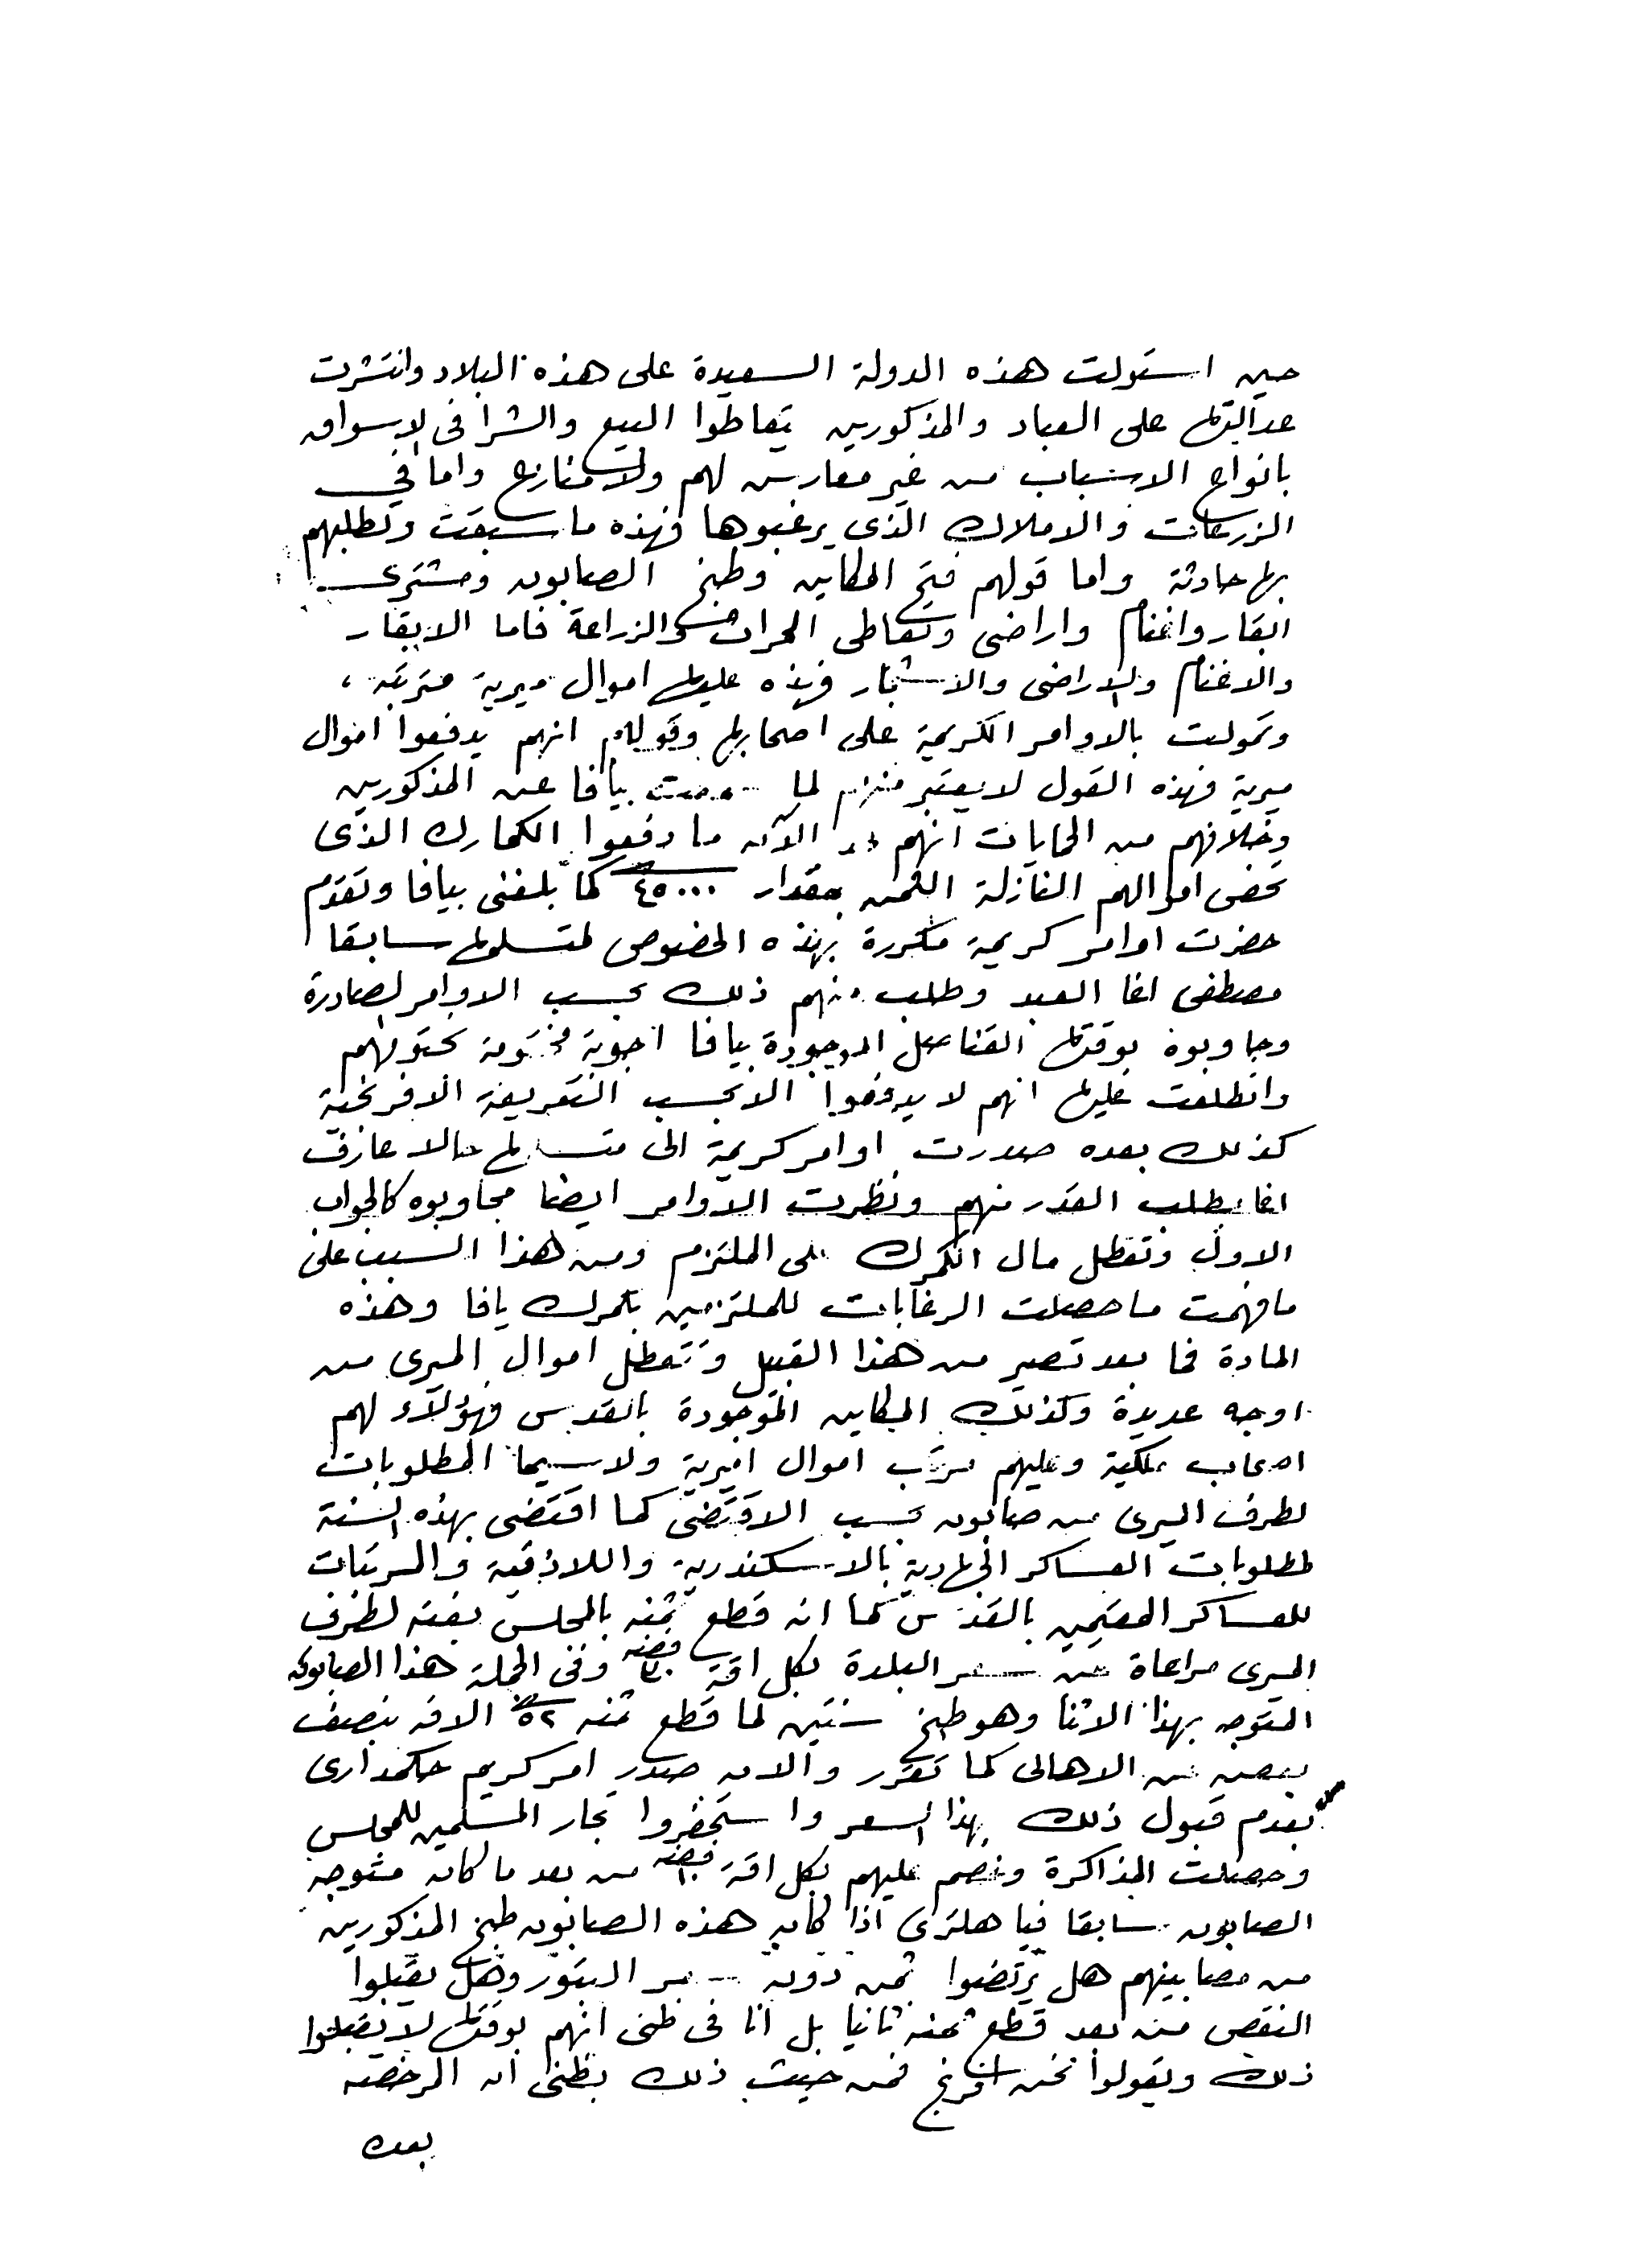 حين استولت هذه الدولة السعيدة على هذه البلاد وانتشرت
عدالتها على العباد والمذكورين يتعاطوا البيع والشرا في الاسواق
بانواع الاسباب من غير معارس لهم ولا منازع واما في
الزرعات والاملاك الذى يرغبوها فهذه ما سبقت وتطلبهم
بها حادثة واما قولهم فتح المكاين وطبخ الصابون ومشترى
ابقار واغنام واراضى وتعاطى الحراث والزراعة فاما الابقار
والاغنام والاراضى والاشجار فهذه عليها اموال ميرية مترتبه ،
وتحولت بالاوامر الكريمة على اصحابها وقولهم انهم يدفعوا اموال
ميرية فهذه القول لا يعتبر منهم لما بيافا عن المذكورين
وخلافهم من الحمايات انهم الآن ما دفعوا الكمارك الذى
تخص اموالهم النازلة بمقدار ٤٥٠٠٠ كما بلغنى بيافا وتقدم
حضرت اوامر كريمة مكررة بهذه الخصوص لمتسلمها سابقا
مصطفى اغا العبد وطلب منهم ذلك بحسب الاوامر الصادرة
وجاوبوه بوقتها القناصل الموجودة بيافا اجوبة مختومة بختومهم
وانطلعت عليها انهم لا يدفعوا الا بحسب التعريفة الافرنجية
كذلك بعده صدرت اوامر كريمة الى متسلمها حالا عازف
اغا بطلب القدر منهم ونظرت الاوامر ايضا مجاوبوه كالجواب
الاول وتعطل مال الكمرك على الملتزم ومن هذا السبب على
ما فهمت ما حصلت الرغابات للملتزمين بكمرك يافا وهذه
المادة فما بعد تصير من هذا القبيل وتتعطل اموال الميرى من
اوجه عديدة وكذلك المكاين الموجودة بالقدس فهؤلاء لهم
اصحاب ملكية وعليهم مرتب اموال اميرية ولا سيما المطلوبات
لطرف الميرى من صابون بحسب الاقتضى كما اقتضى بهذه السنة
لمطلوبات العساكر الجهادية بالاسكندرية واللاذقية والمرتبات
للعساكر المقيمين بالقدس كما انه قطع ثمنه بالمجلس بفئة لطرف
الميرى مراعاة عن سعر البلدة بكل اقة فضه وفى الجملة هذا الصابون
المتوجه بهذا الاثنا وهو طبخ سنتين لما قطع ثمنه ٥٢ الاقه بنصف
من الاهالى كما تقرر والان صدر امر كريم حكمدارى
بعدم قبول ذلك بهذا السعر واستحضروا تجار المسلمين للمجلس
وحصلت المذاكرة وخصم عليهم بكل اقة فضه من بعد ما كان متوجه
الصابون سابقا فيا هلترى اذا كان هذه الصابون طبخ المذكورين
من مصابينهم هل يرتضوا ثمن دون وهل يقبلوا
النقص من بعد قطع ثمنه ثانيا بل انا فى ظنى انهم بوقتها لا يقبلوا
ذلك ويقولوا نحن افرنج فمن حيث ذلك بظنى ان الرخصه
بعدم